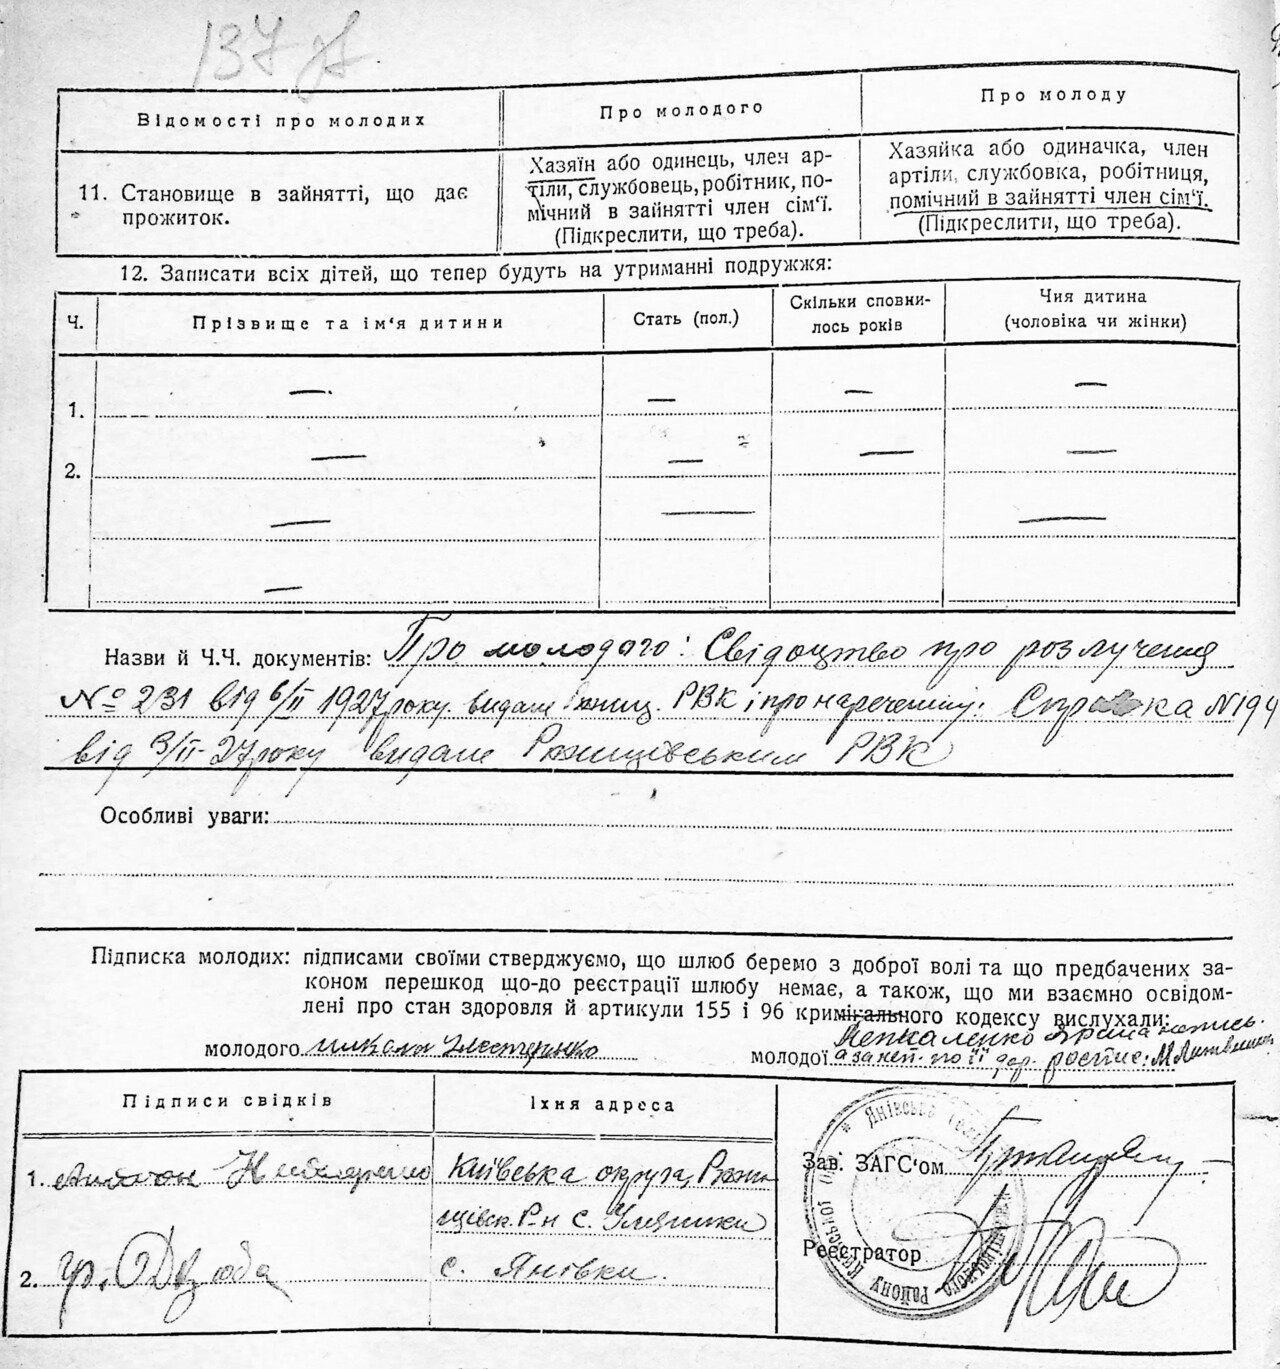 137
Відомості про молодих
Про молодого
Про молоду
11. Становище в зайнятті, що дає
прожиток.
Хазяїн або одинець, член ар-
тіли, службовець, робітник, по-
мічний в зайнятті член сім‘ї.
(Підкреслити, що треба).
Хазяйка або одиначка, член
артіли, службовка, робітниця,
помічний в зайнятті член сім‘ї.
(Підкреслити, що треба).
12. Записати всіх дітей, що тепер будуть на утриманні подружжя:
Ч.
Прізвище та ім‘я дитини
Стать (пол.)
Скільки сповни-
лось років
Чия дитина
(чоловіка чи жінки)
1. — — — —
2. — — — —
— — —
—
Назви й Ч.Ч. документів: Про молодого: Свідоцтво про розлучення
№ 231 від 6/II 1927 року. видане РВК і про наречену: Справка N 194
від 3/II-27 року видане Рожицівським РВК
Особливі уваги:
Підписка молодих: підписами своїми стверджуємо, що шлюб беремо з доброї волі та що предбачених за-
коном перешкод що-до реєстрації шлюбу немає, а також, що ми взаємно освідом-
лені про стан здоровля й артикули 155 і 96 кримікального кодексу вислухали:
молодого Микола Нестеренко
молодої а за неп. по її дор. роспис:
Підписи свідків
Їхня адреса
1. Антон
Київська округа, Рожи
цівск. Р-н с.
2. гр. Дзюба
с. Янівки.
Зав. ЗАГС‘ом
Реєстратор
Янівська
району Київської